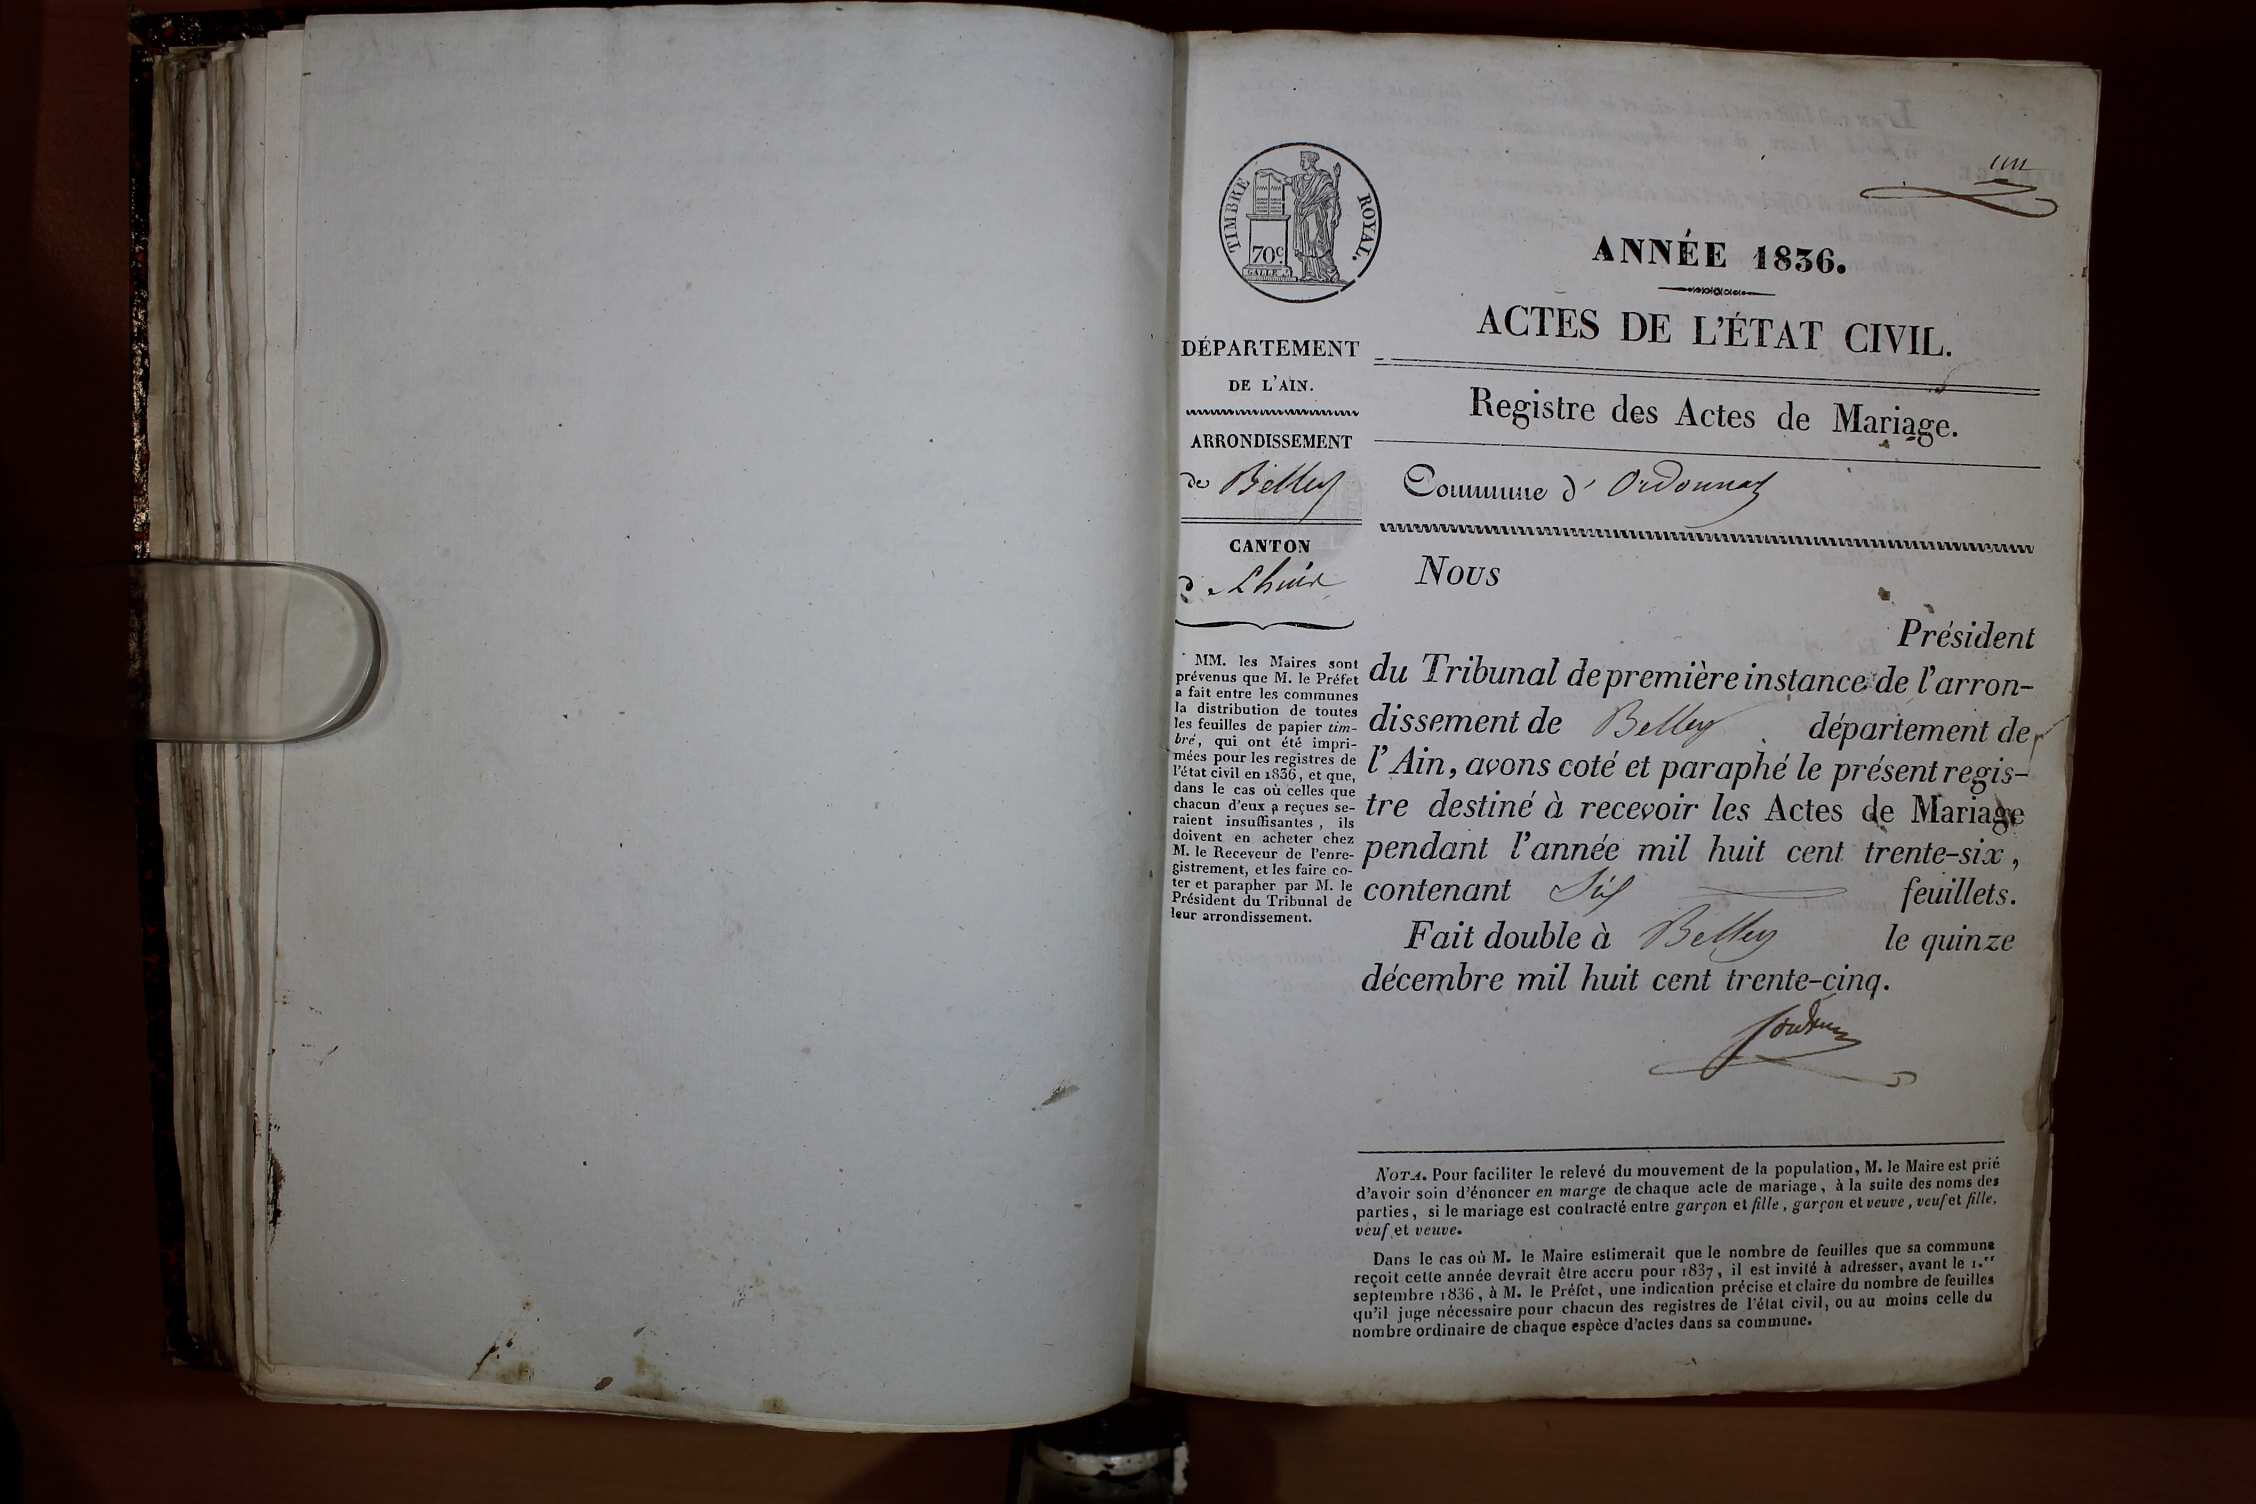 un
TIMBRE ROYAL.
70c.
GALLE
ANNÉE 1836.
ACTES DE L'ÉTAT CIVIL.
Registre des Actes de Mariage.
Commune d' Ordonnaz
DÉPARTEMENT
DE L'AIN.
ARRONDISSEMENT
de Belley
CANTON
de Lhuis
MM. les Maires sont
prévenus que M. le Préfet
a fait entre les communes
la distribution de toutes
les feuilles de papier tim-
bré, qui ont été impri-
mées pour les registres de
l'état civil en 1836, et que,
dans le cas où celles que
chacun d'eux a reçues se-
raient insuffisantes, ils
doivent en acheter chez
M. le Receveur de l'enre-
gistrement, et les faire co-
ter et parapher par M. le
Président du Tribunal de
leur arrondissement.
Nous
Président
du Tribunal de première instance de l'arron-
dissement de Belley département de
l'Ain, avons coté et paraphé le présent regis-
tre destiné à recevoir les Actes de Mariage
pendant l'année mil huit cent trente-six,
contenant Six feuillets.
Fait double à Belley le quinze
décembre mil huit cent trente-cinq.
NOTA. Pour faciliter le relevé du mouvement de la population, M. le Maire est prié
d'avoir soin d'énoncer en marge de chaque acte de mariage, à la suite des noms des
parties, si le mariage est contracté entre garçon et fille, garçon et veuve, veuf et fille,
veuf et veuve.
Dans le cas où M. le Maire estimerait que le nombre de feuilles que sa commune
reçoit cette année devrait être accru pour 1837, il est invité à adresser, avant le 1.er
septembre 1836, à M. le Préfet, une indication précise et claire du nombre de feuilles
qu'il juge nécessaire pour chacun des registres de l'état civil, ou au moins celle du
nombre ordinaire de chaque espèce d'actes dans sa commune.